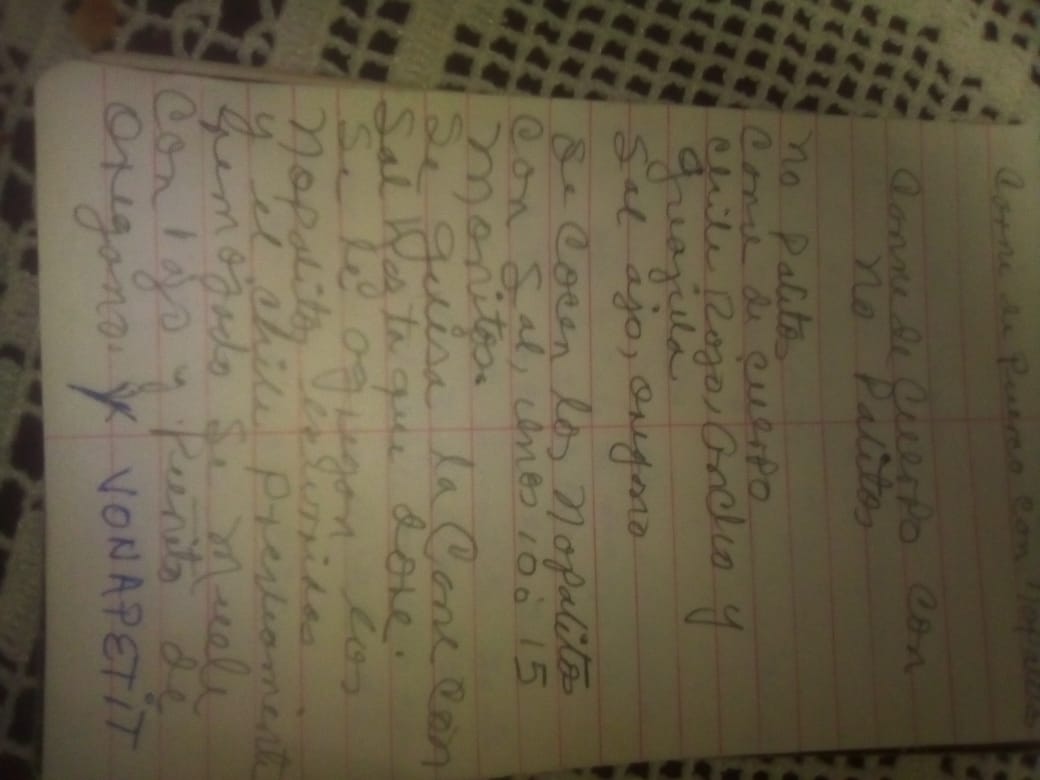 Carne de Puerco con Nopalitos
Carne de Cuerpo con
No Palitos
No Palitos
Carne de cuerpo
chile Rojo, Ancho y
guajilla
Sal ajo, oregano
Se Cocen los Nopalitos
Con Sal, unos 10 ó 15
Monitos.
Se guisa la Carne Con
Sal Hasta que dore.
Se le agregan los
Nopalitos exurridos
y el chile previamente
remojado Se muele
Con 1 ajo y Puñito de
Oregano. Y VONAPETIT